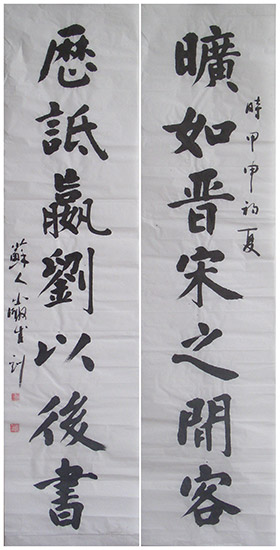 曠如晋宋之間客
時甲申初夏
歷詆嬴劉以後書
蘇人